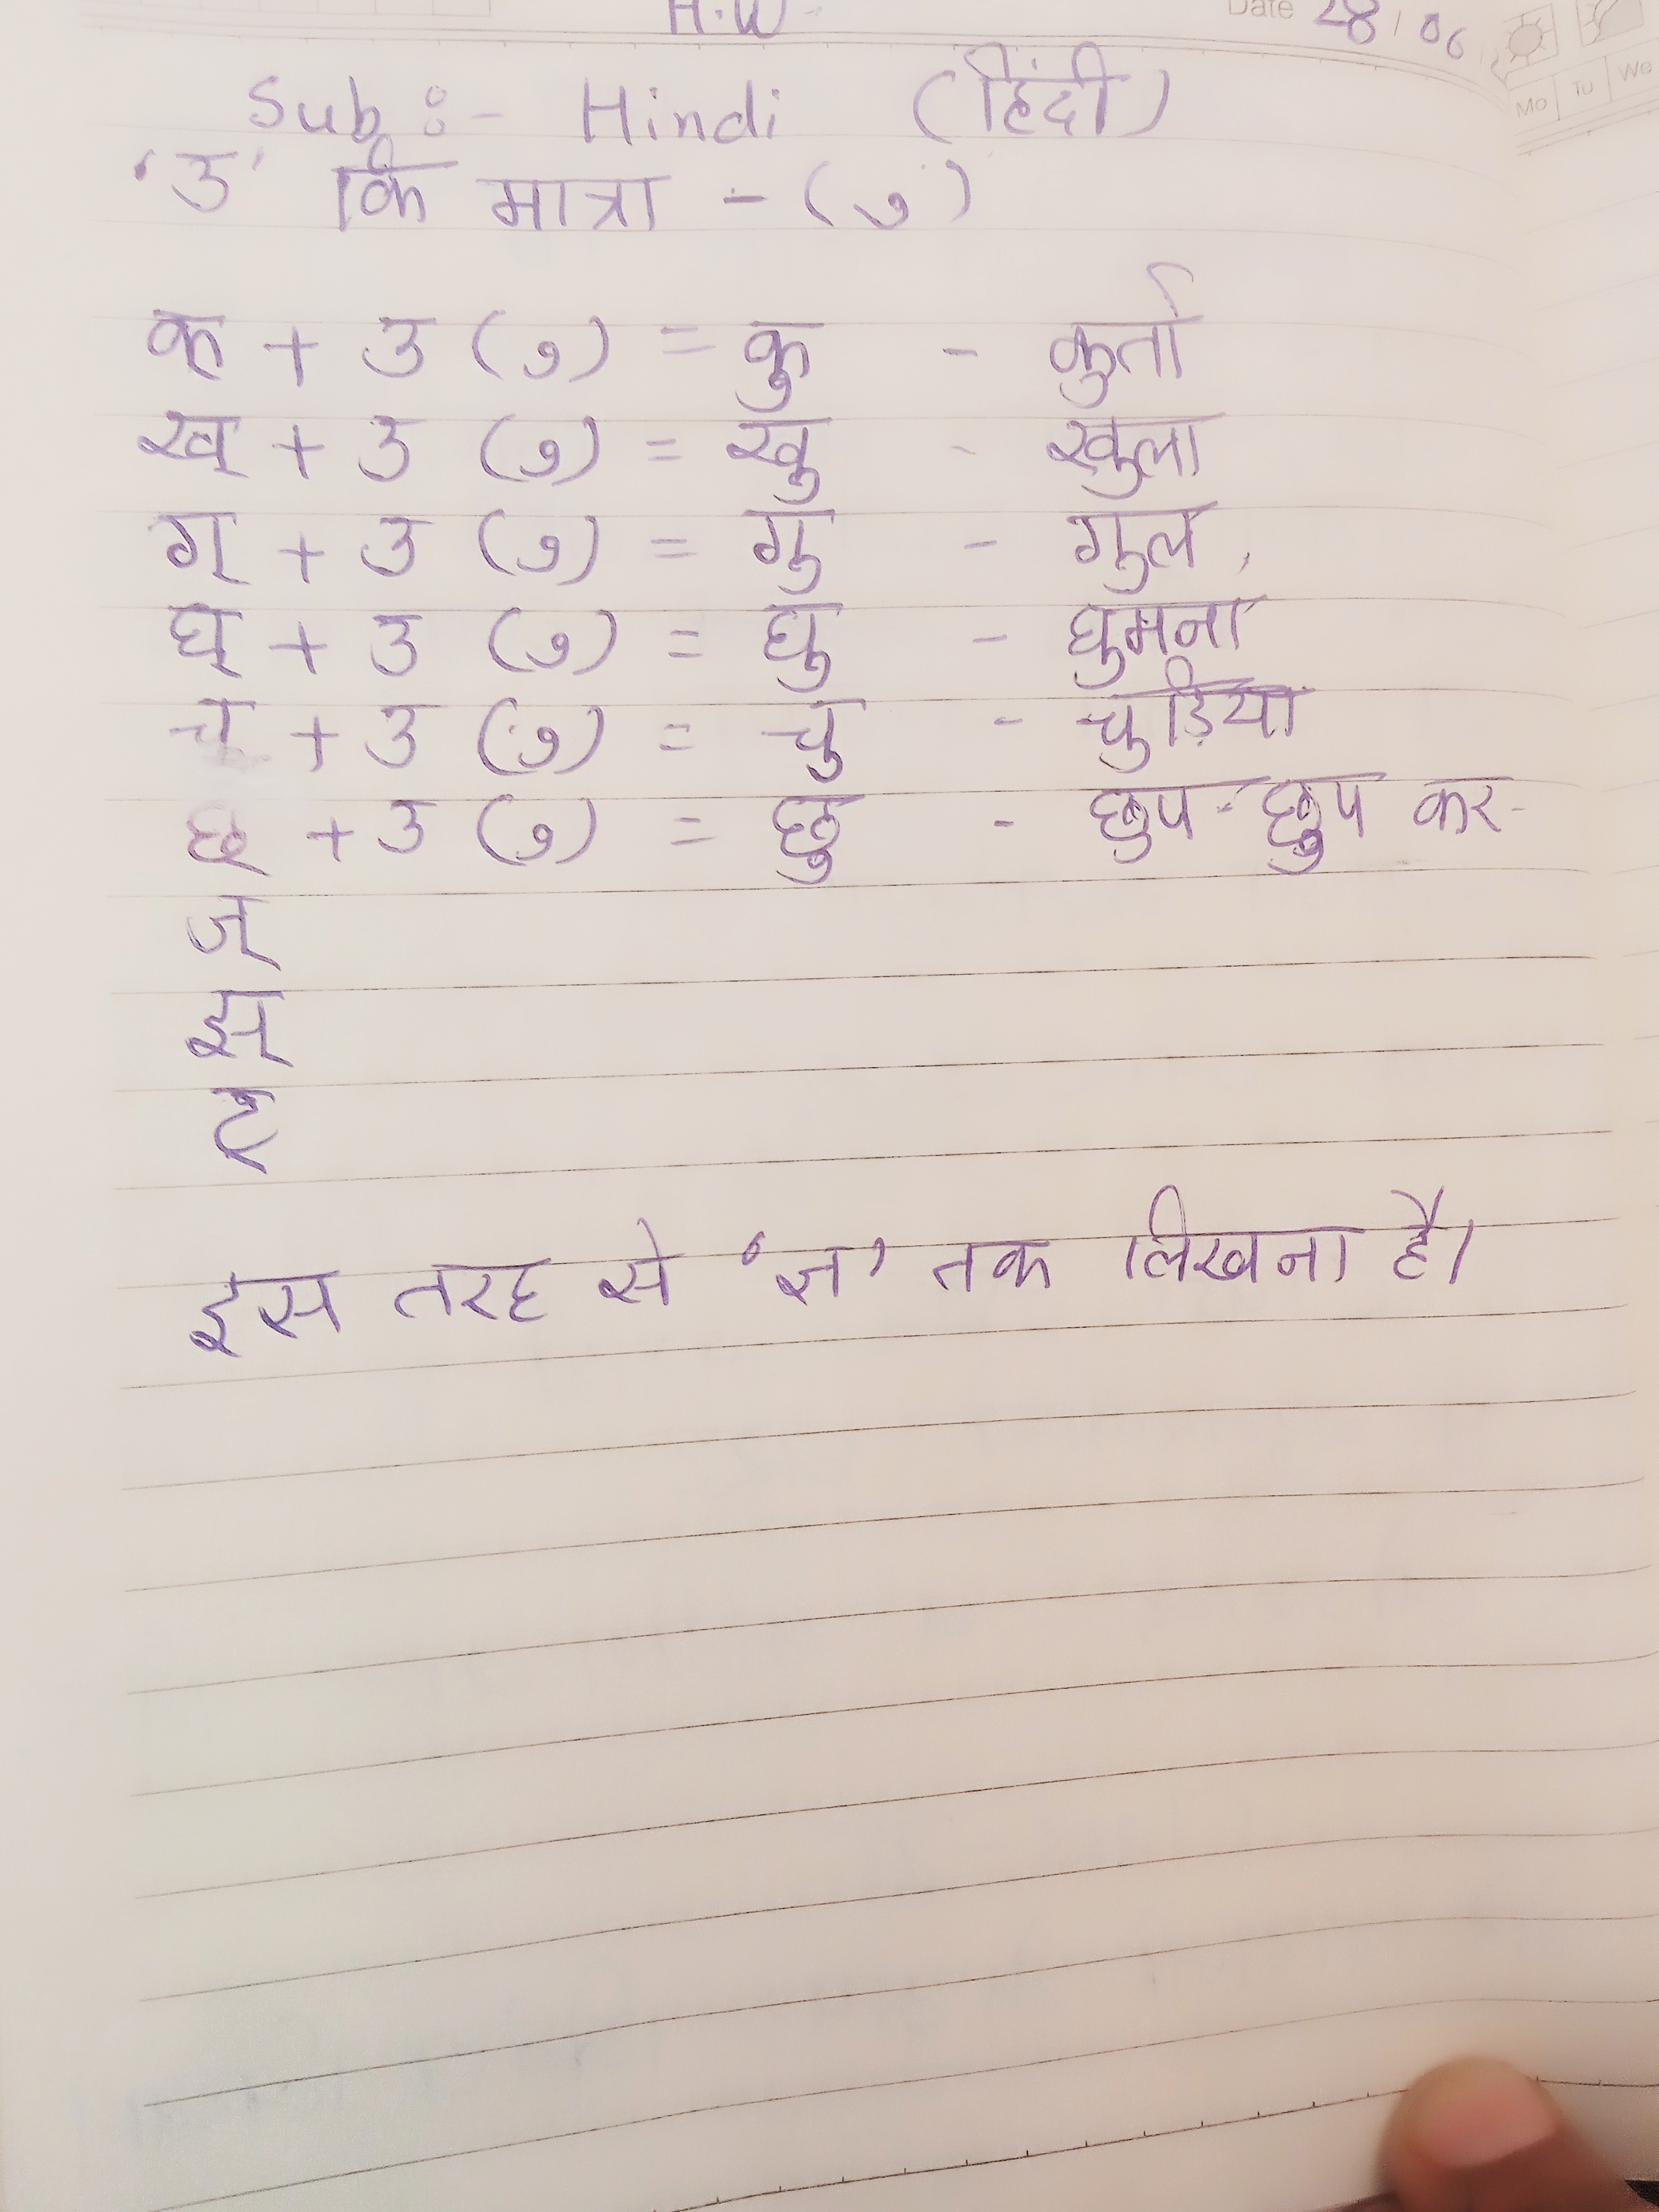 H.W
Date 28/06
Mo Tu We
Sub :- Hindi (हिंदी)
'उ' कि मात्रा - ( ु )
क् + उ ( ु ) = कु - कुर्ता
ख् + उ ( ु ) = खु - खुला
ग् + उ ( ु ) = गु - गुल,
घ् + उ ( ु ) = घु - घुमना
च् + उ ( ु ) = चु - चुड़िया
छ् + उ ( ु ) = छु - छुप-छुप कर-
ज्
झ्
ट्
इस तरह से 'ज्ञ' तक लिखना है।